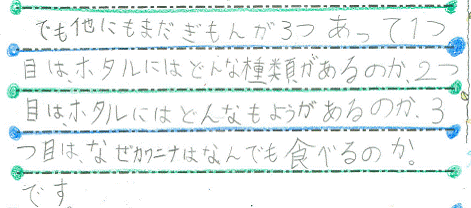 でも他にもまだぎもんが3つあって1つ
目は、ホタルにはどんな種類があるのか、2つ
目は、ホタルにはどんなもようがあるのか、3
つ目は、なぜカワニナはなんでも食べるのか。
です。